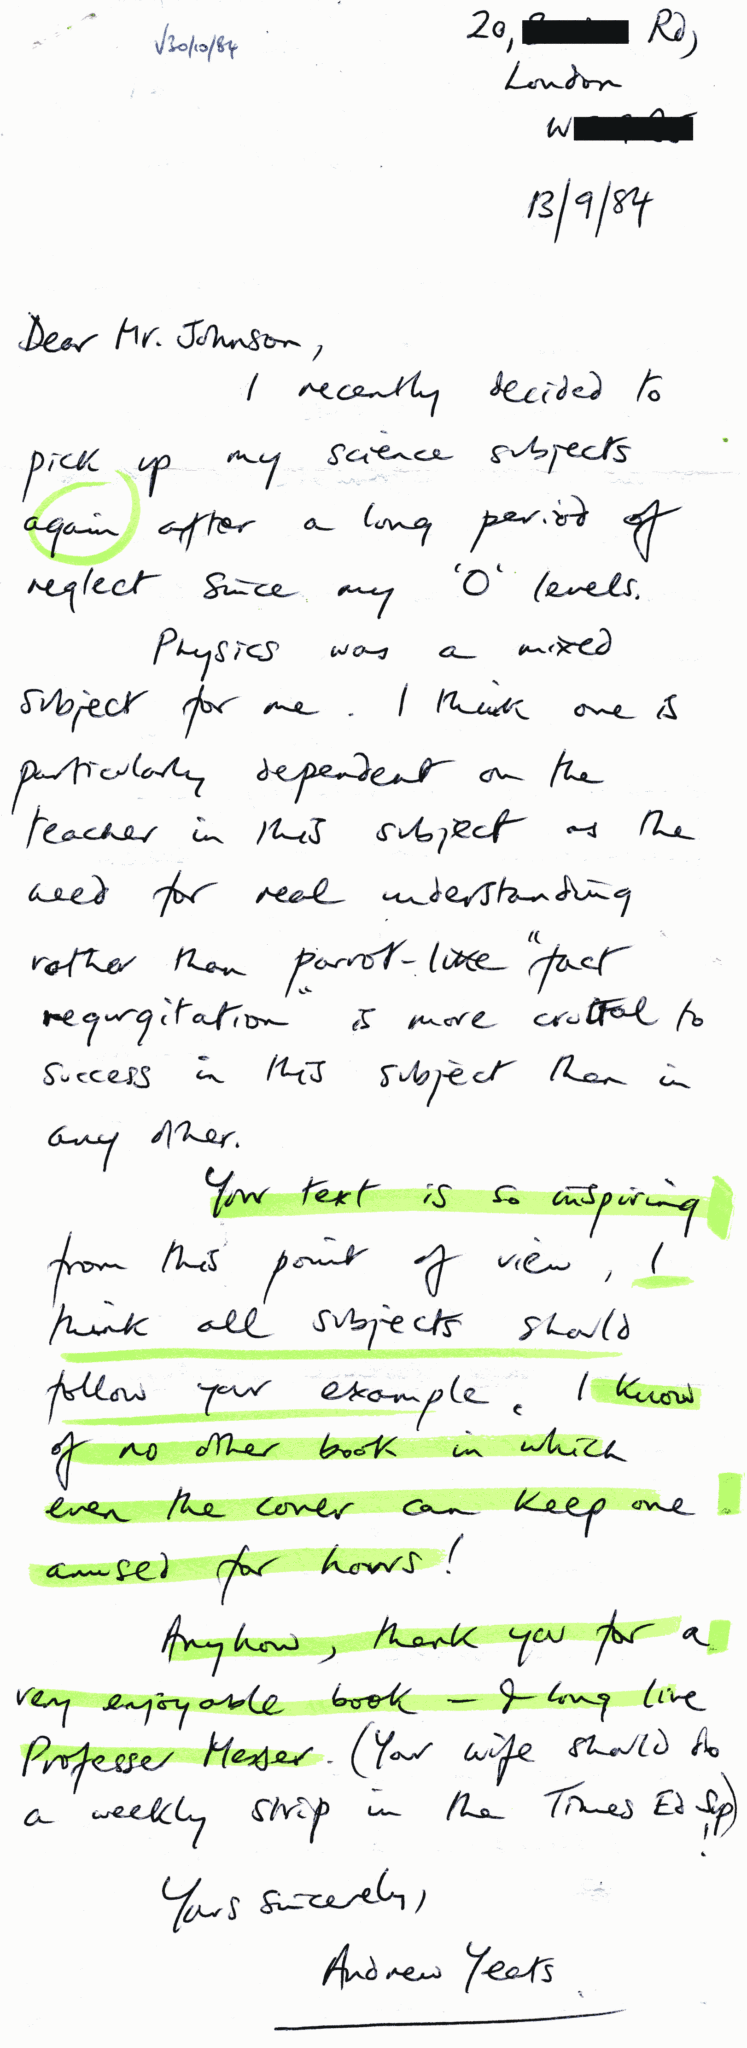 √30/10/84
20, Rd,
London
W
13/9/84
Dear Mr. Johnson,
I recently decided to
pick up my science subjects
again after a long period of
neglect since my 'O' levels.
Physics was a mixed
subject for me. I think one is
particularly dependent on the
teacher in this subject as the
need for real understanding
rather than parrot-like "fact
regurgitation" is more crucial to
success in this subject than in
any other.
Your text is so inspiring
from this point of view, I
think all subjects should
follow your example. I know
of no other book in which
even the cover can keep one
amused for hours!
Anyhow, thank you for a
very enjoyable book - & long live
Professer Messer. (Your wife should do
a weekly strip in the Times Ed Sup)!
Yours sincerely,
Andrew Yeats.